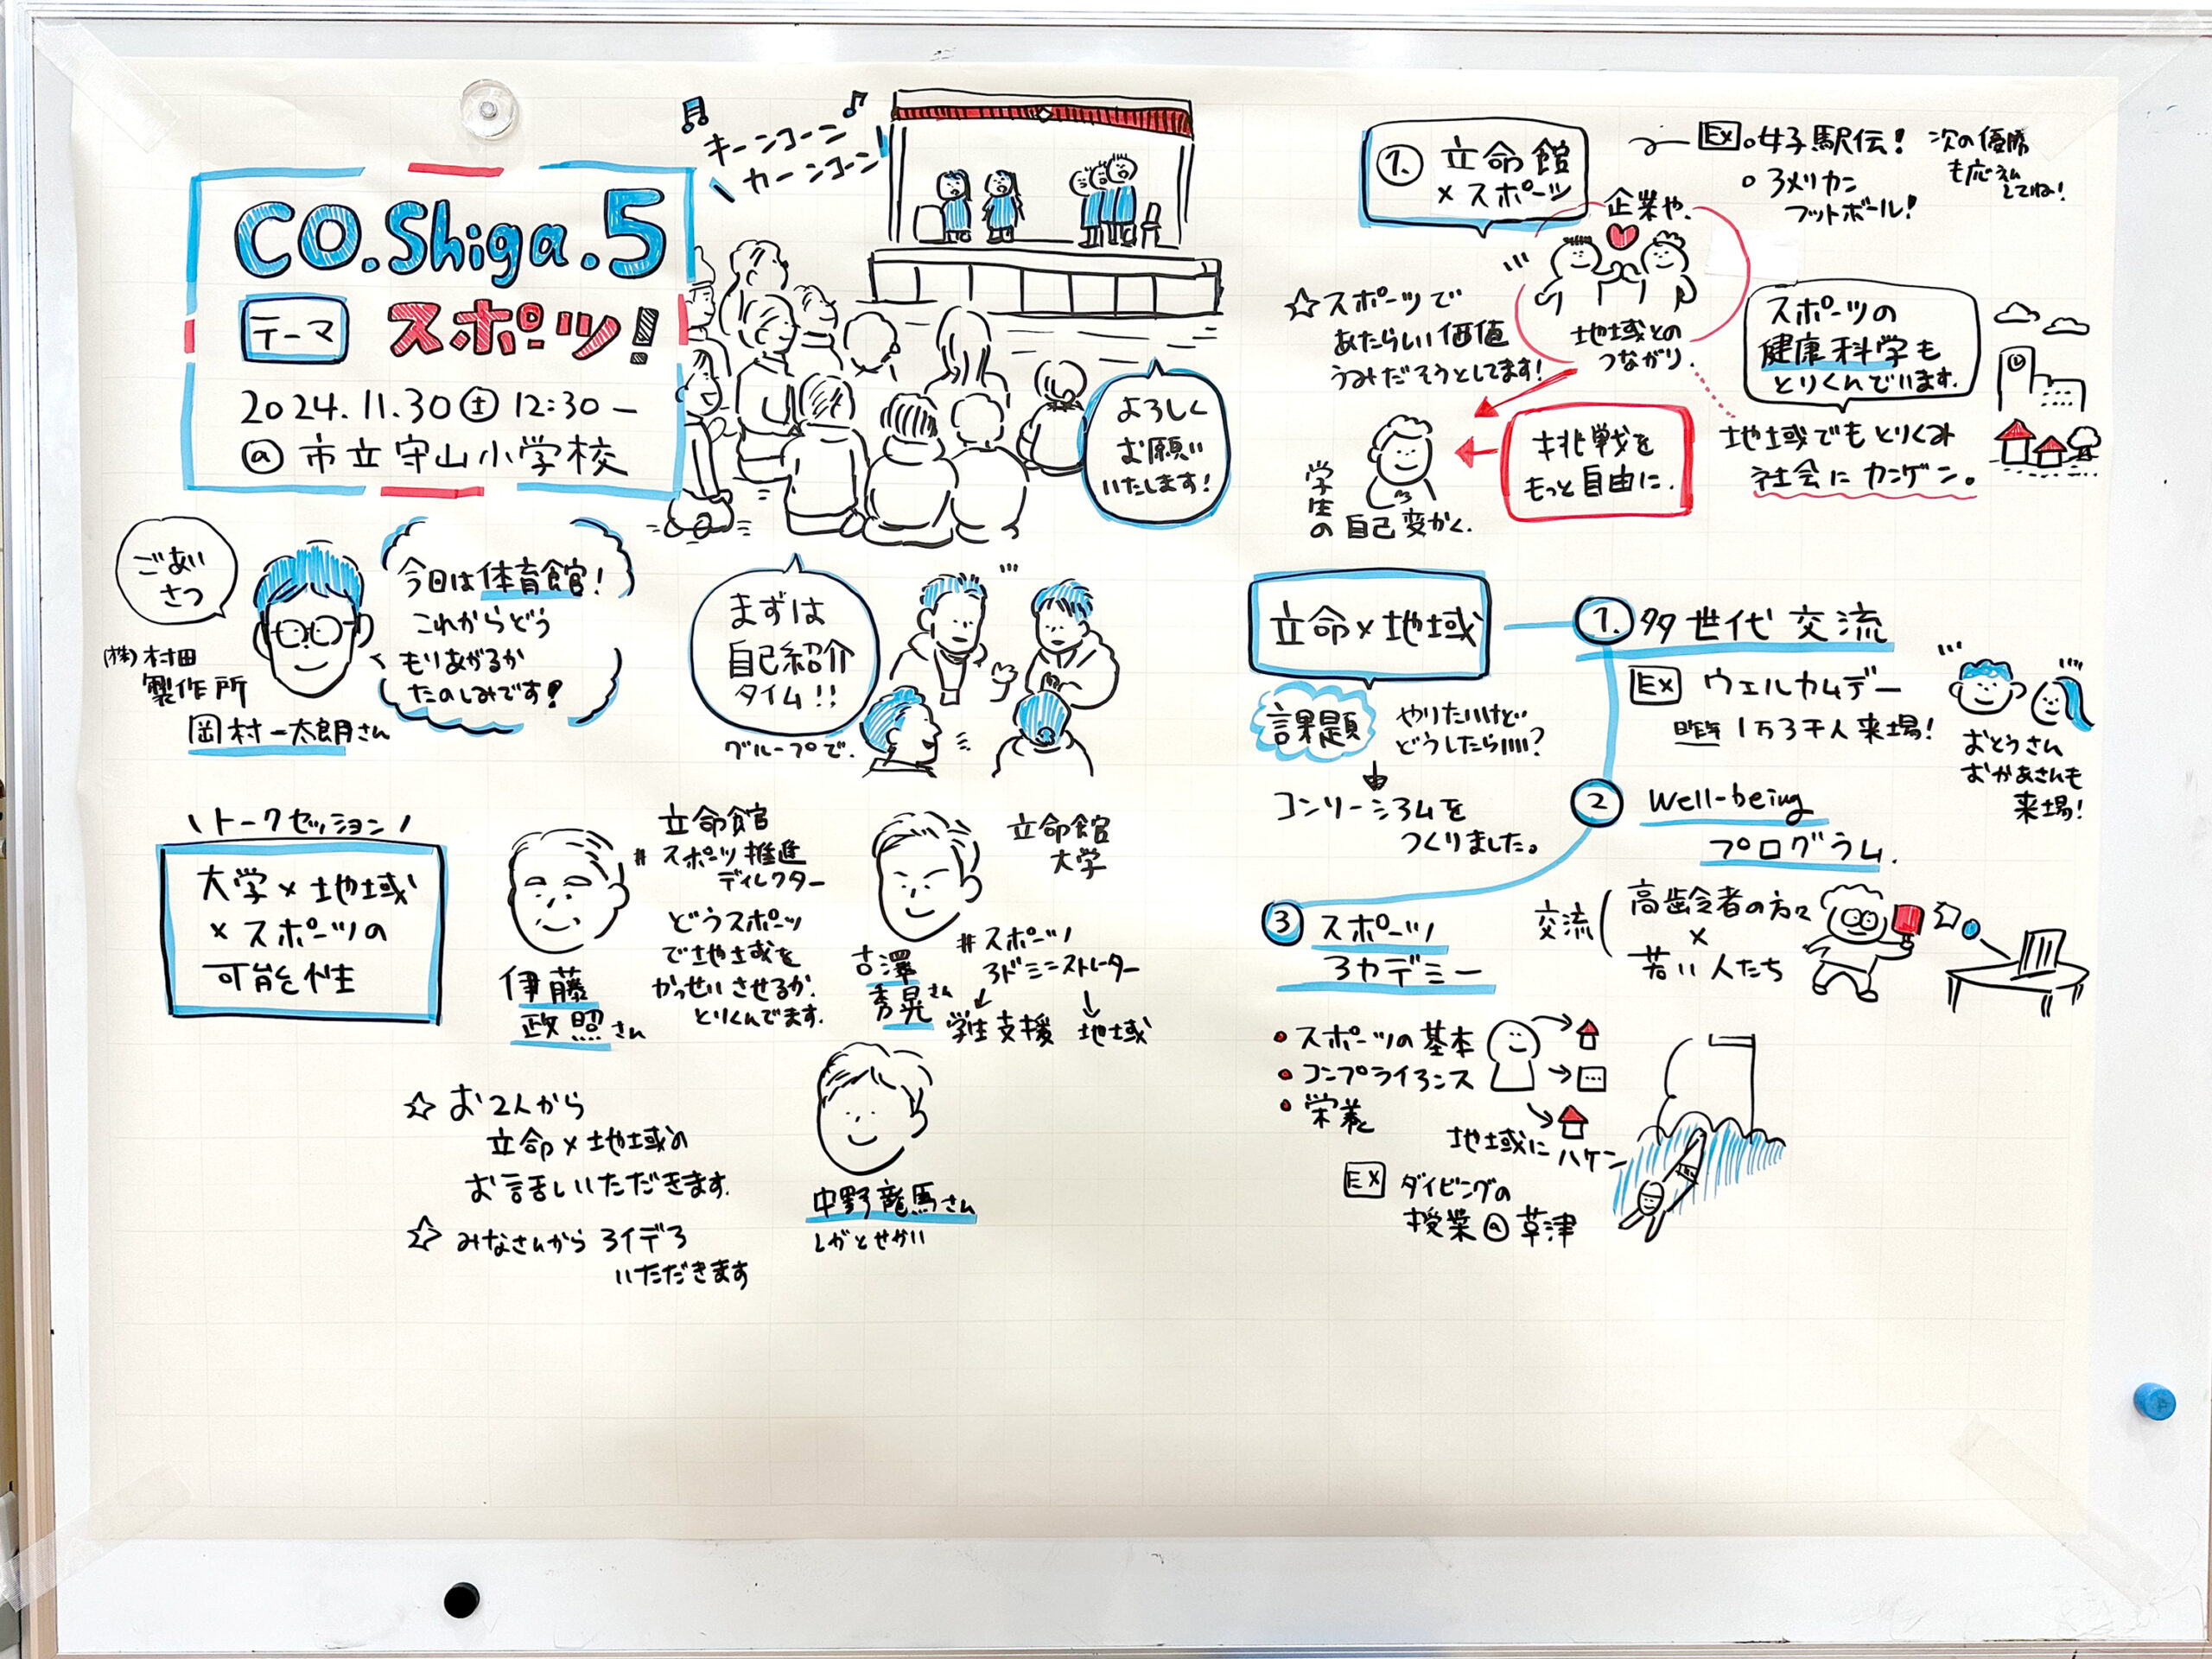 CO.Shiga.5
テーマ スポーツ!
2024.11.30㊏ 12:30–
@ 市立守山小学校
キーンコーン
カーンコーン
よろしく
お願い
いたします!
ごあい
さつ
(株)村田
製作所
岡村一太朗さん
今日は体育館!
これからどう
もりあがるか
たのしみです!
まずは
自己紹介
タイム!!
グループで.
\トークセッション/
大学×地域
×スポーツの
可能性
立命館
#スポーツ推進
ディレクター
どうスポーツ
で地域を
かっせいさせるか.
とりくんでます.
伊藤
政照さん
立命館
大学
古澤
秀晃さん
#スポーツ
アドミニストレーター
学生支援 地域
☆お2人から
立命×地域の
お話しいただきます.
☆みなさんから アイデア
いただきます
中野龍馬さん
しがとせかい
1. 立命館
×スポーツ
EX 女子駅伝! 次の優勝
も応えん
してね!
アメリカン
フットボール!
企業や、
地域との
つながり.
☆スポーツで
あたらしい価値
うみだそうとしてます!
スポーツの
健康科学も
とりくんでいます.
地域でもとりくみ
社会にカンゲン。
挑戦を
もっと自由に.
学生の 自己変かく.
立命×地域
課題
やりたいけど
どうしたらいい?
コンソーシアムを
つくりました。
1. 多世代交流
EX ウェルカムデー
昨年1万3千人来場!
おとうさん
おかあさんも
来場!
2 Well-being
プログラム.
交流
高齢者の方々
×
若い人たち
3 スポーツ
アカデミー
・スポーツの基本
・コンプライアンス
・栄養
地域にハケン
EX ダイビングの
授業@草津